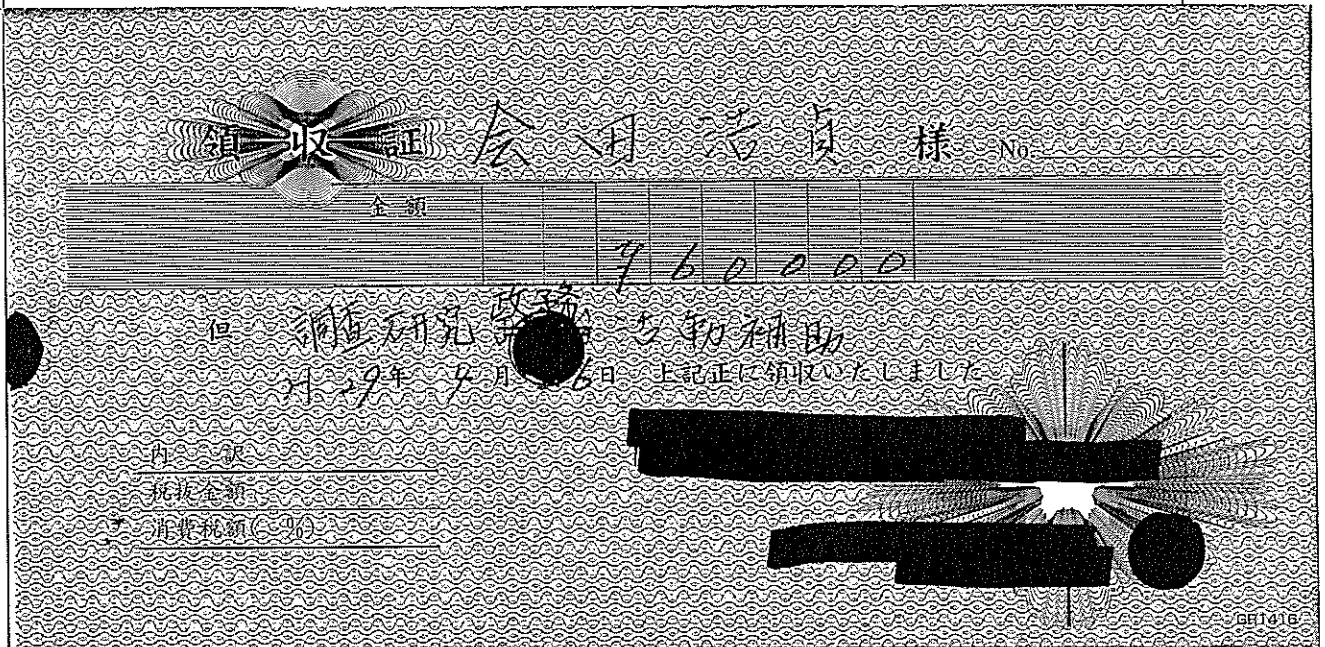 領収証 会田浩貞 様 No.
金額
¥60000
但 調査研究 活動補助
H29年 4月 6日 上記正に領収いたしました
内 訳
税抜金額
消費税額( %)
GR1416